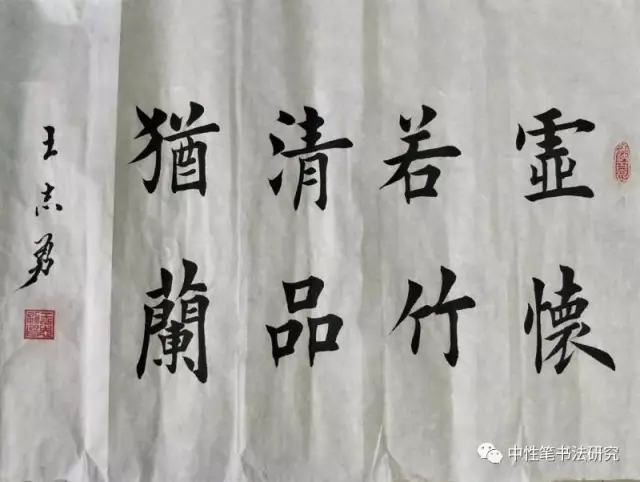 虛懷
若竹
清品
猶蘭
王志勇
中性笔书法研究